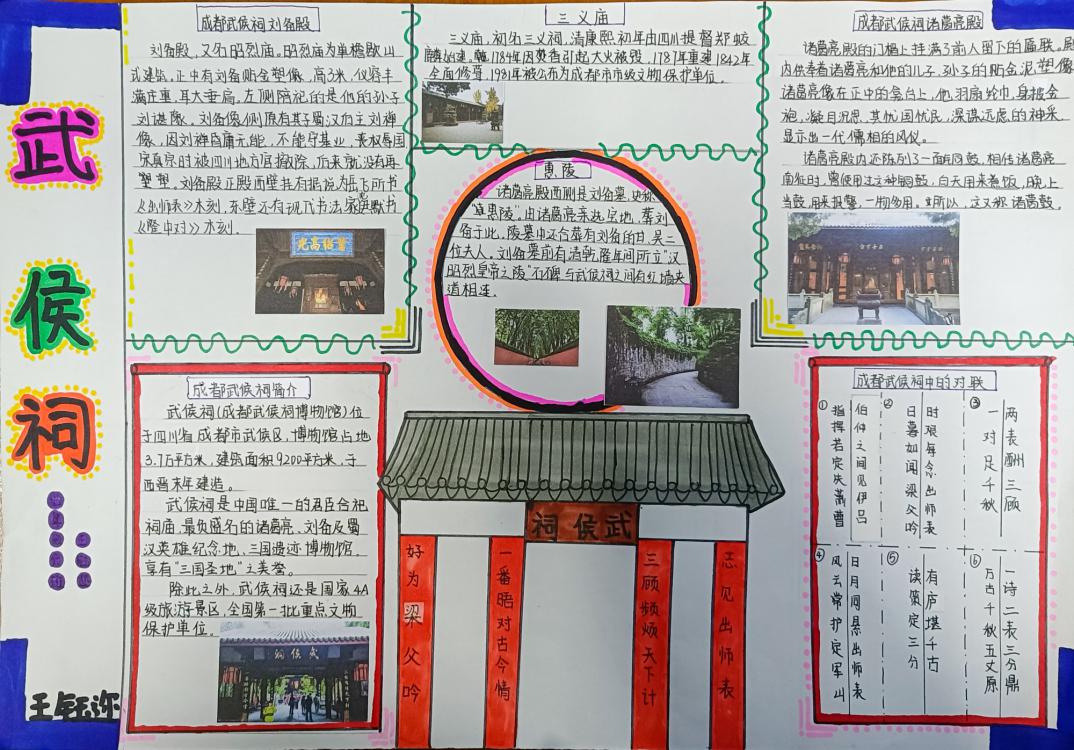 武
侯
祠
王钰涵
成都武侯祠刘备殿
刘备殿，又名昭烈庙。昭烈庙为单檐歇山
式建筑，正中有刘备贴金塑像，高3米，仪容丰
满庄重，耳大垂肩。左侧陪祀的是他的孙子
刘谌殿。刘备像侧原有其子蜀汉后主刘禅
像，因刘禅昏庸无能，不能守基业，丧权辱国
宋真宗时被四川地方官撤除，后来就没有再
塑塑。刘备殿正殿西壁共有据说为岳飞所书
《出师表》木刻，东壁还有现代书法家沈默书
《隆中对》木刻。
三义庙
三义庙，初名三义祠，清康熙初年由四川提督郑蛟
麟始建。1784年因焚香引起大火被毁，1787年重建1842年
全面修葺，1981年被公布为成都市市级文物保护单位。
成都武侯祠诸葛亮殿
诸葛亮殿的门楹上挂满了前人留下的匾联。殿
内供奉着诸葛亮和他的儿子，孙子的贴金泥塑像
诸葛亮像在正中的龛台上，他羽扇纶巾，身披金
袍，凝目沉思，其忧国忧民，深谋远虑的神采
显示出一代儒相的风仪。
诸葛亮殿内还陈列了一面铜鼓，相传诸葛亮
南征时，曾使用过这种铜鼓，白天用来煮饭，晚上
当鼓用来报警，一物多用。所以，这又称诸葛鼓。
惠陵
诸葛亮殿西侧是刘备墓，史称
"惠陵"。由诸葛亮亲选宝地，葬刘
备于此，陵墓中还合葬有刘备的甘、吴二
位夫人。刘备墓前有清乾隆年间所立"汉
昭烈皇帝之陵"石碑与武侯祠之间有红墙夹
道相连。
成都武侯祠简介
武侯祠（成都武侯祠博物馆）位
于四川省成都市武侯区，博物馆占地
3.7万平方米，建筑面积9200平方米，于
西晋末年建造。
武侯祠是中国唯一的君臣合祀
祠庙，最负盛名的诸葛亮、刘备及蜀
汉英雄纪念地，三国遗迹博物馆，
享有"三国圣地"之美誉。
除此之外，武侯祠还是国家4A
级旅游景区，全国第一批重点文物
保护单位。
武侯祠
武侯祠
好为梁父吟
一番晤对古今情
三顾频烦天下计
忘见出师表
成都武侯祠中的对联
①
伯仲之间见伊吕
指挥若定失萧曹
②
时艰每念出师表
日暮如闻梁父吟
③
两表酬三顾
一对足千秋
④
日月同悬出师表
风云常护定军山
⑤
有庐堪千古
读策定三分
⑥
一诗二表三分鼎
万古千秋五丈原